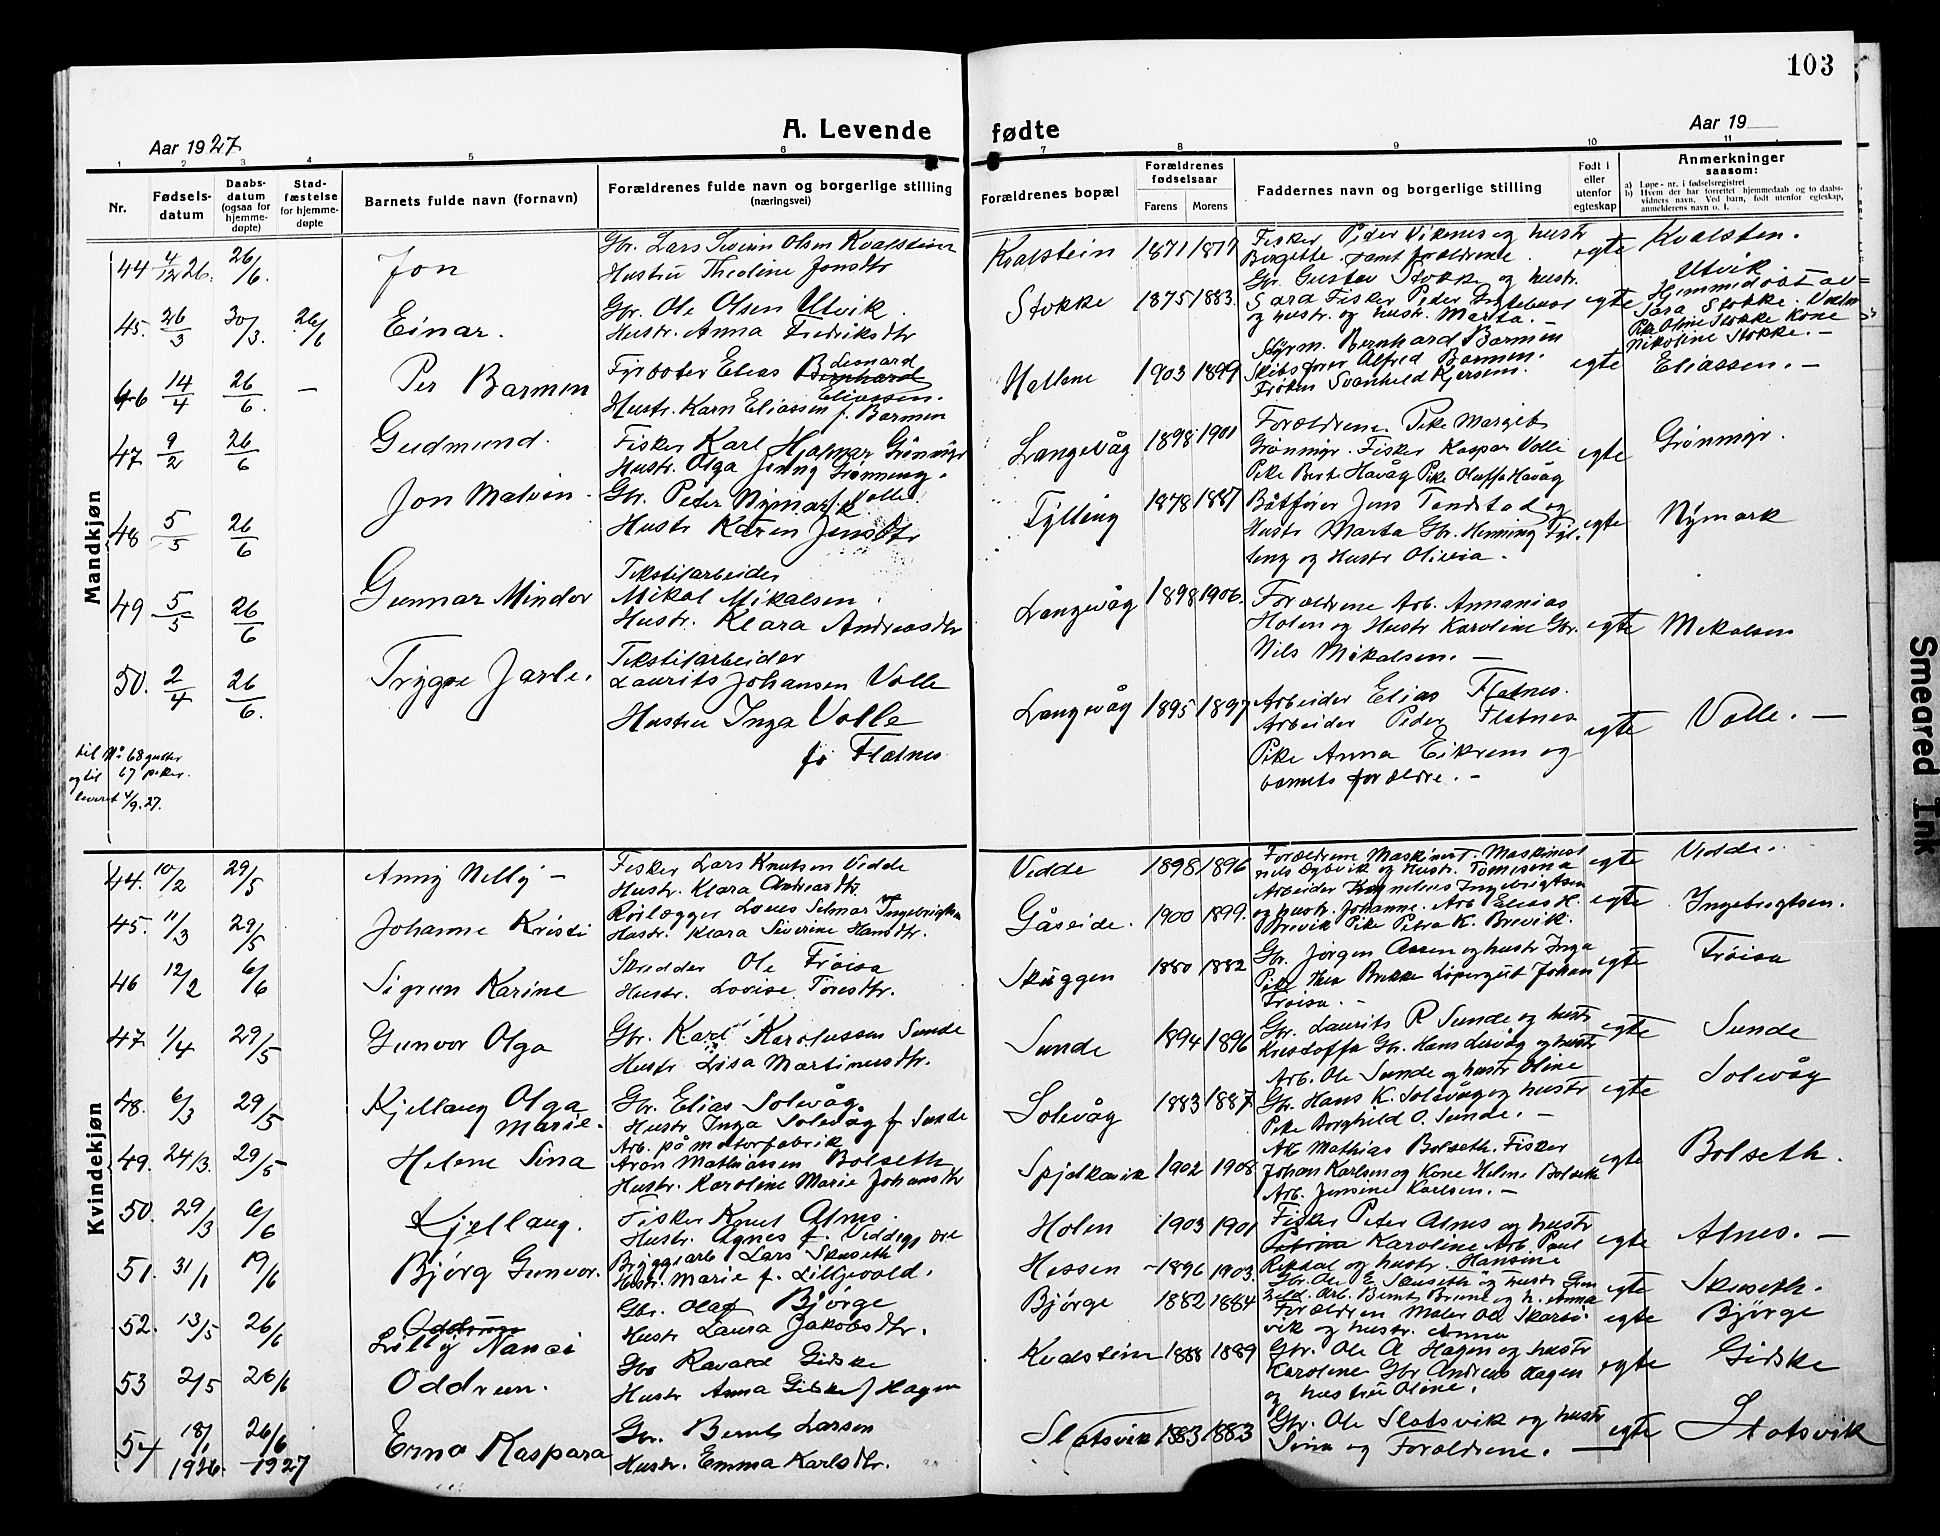 103
Aar 1927
A. Levende fødte
Aar 19
1 2 3 4 5 6 7 8 9 10 11
Nr.
Fødsels-
datum
Daabs-
datum
(ogsaa for
hjemme-
døpte)
Stad-
fæstelse
for hjemme-
døpte
Barnets fulde navn (fornavn)
Forældrenes fulde navn og borgerlige stilling
(næringsvei)
Forældrenes bopæl
Forældrenes
fødselsaar
Farens Morens
Faddernes navn og borgerlige stilling
Født i
eller
utenfor
egteskap
Anmerkninger
saasom:
a) Løpe-nr. i fødselsregistret
b) Hvem der har forrettet hjemmedaab og to daabs-
vidners navn. Ved barn, født utenfor egteskap,
anmelderens navn o. l.
Mandkjøn
44 4/12 26. 26/6. Jon
Gbr. Lars Severin Olsen Kvalstein
Hustru Theoline Jonsdtr
Kvalstein 1871 1877
Fisker Peder Vikenes og hustr
Borgitte samt forældrene.
egte Kvalsten.
45. 26/3 30/3. 26/6 Einar.
Gbr. Ole Olsen Utvik
Hustr. Anna Fredriksdtr
Stokke 1875 1883.
Gbr. Gustav Stokke og hustr.
Sara Fisker Peder
og hustr. og hustr. Marta. –
egte Utvik
Hjemmedøbt av
Sara Stokke.
Pike Oline Stokke Kone
Nikoline Stokke. –
46 14/4 26/6. – Per Barmen
Fyrbøter Elias Bernhard Leonard
Eliassen.
Hustr. Karn Eliassen f. Barmen
Hallene 1903 1899
Styrm. Bernhard Barmen
Skibsfører Alfred Barmen.
Frøken Svanhild Kjersem.
egte Eliassen. –
47 9/2 26/6 Gudmund.
Fisker Karl Hjalmar Grönmyr
Hustr. Olga Jenny Grönmyr.
f. Valle.
Langevåg 1898 1901
Forældrene Pike Margit
Grönmyr. Fisker Kaspar Valle
Pike Berte Havåg Pike Oluffa Havåg
egte Grönmyr.
48 5/5 26/6 Jon Malvin.
Gbr. Peter Nymark
Hustr Karen Jensdtr
Fylling 1878 1887
Båtfører Jens Tandstad og
Hustr Marta Gbr. Henning Fyl-
ling og Hustr Olivia.
egte Nymark
49 5/5 26/6 Gunnar Mindor
Tekstilarbeider
Mikal Mikalsen
Hustr. Klara Andreasdtr
Langevåg 1898 1906.
Forældrene Arb. Annanias
Holen og Hustr Karoline Gbr.
Nils Mikalsen. –
egte Mikalsen
50. 2/4 26/6. Trygve Jarle.
Tekstilarbeider
Laurits Johansen Valle
Hustru Inga Valle
f. Flatnes
Langevåg 1895 1897
Arbeider Elias Flatnes.
Arbeider Peder Flatnes
Pike Anna Eikrem og
barnets forældre. –
egte Valle. –
til No 68 gutter
og til 67 piker
leveret 4/9.27.
Kvindekjøn
44. 10/2 29/5 Anny Nelly –
Fisker Lars Knutsen Vedde
Hustr. Klara Andreasdtr.
Vedde 1898 1896
Forældrene Maskinist
og Hustr.
egte Vedde.
45. 11/3 29/5 Johanne Kristi
Rörlægger Selmar Ingebrigtsen
Hustr. Klara Siverine Hansdtr.
Gåseide. 1900 1899.
Arbeider Kornelius Ingebrigtsen
og hustr. Johanne. Arb Elias H.
Brevik Pike Petra K. Brevik.
egte Ingebrigtsen.
46 12/2 6/6 Sigrun Karine
Skredder Ole Fröisa
Hustr. Lovise Toresdtr.
Skuggen 1880 1882
Gbr. Jørgen Aasen og hustr Inga
Pike Bukke Löpergut Johan
Fröisa. –
egte Fröisa
47. 1/4 29/5 Gunvor Olga
Gbr. Karl Karolussen Sunde
Hustr Lisa Martinusdtr.
Sunde 1894 1896
Gbr. Laurits R Sunde og hustr
Kristoffa Gbr. Hans Lervåg og hustr
Arb. Ole Sunde og hustr Oline
egte Sunde
48. 6/3 29/5 Kjellaug Olga
Marie.
Gbr. Elias Solevåg
Hustr Inga Solevåg f. Sunde
Solevåg 1883 1887
Gbr. Hans K. Solevåg og hustr
Pike Borghild O. Sunde. –
egte Solevåg
49. 24/3. 29/5 Helene Sina
Arb. på motorfabrik
Aron Mathiassen Bolseth
Hustr. Karoline Marie Johansdtr
Spjelkavik 1902 1908
Arb Mathias Bolseth. Fisker
Johan Karlsen og Kone Helene Bolseth
Arb. Jensine Karlsen. –
egte Bolseth.
50. 29/3 6/6 Kjellaug.
Fisker Knut Alnes.
Hustr. Agnes f. Veddegjære
Holen 1903 1901
Fisker Peter Alnes og hustr
Petrine Karoline Arb. Paul
og hustr. Hansine
egte Alnes. –
51. 31/1 19/6 Bjørg Gunvor.
Bryggearb Lars Skuseth
Hustr. Marie f. Lillevold.
Hessen 1896 1903.
Gbr. Ole E. Skuseth og hustr Gun
hild. Arb. Bernt Brune og h. Anna
egte Skuseth.
52. 13/5 26/6 Oddrun
Lilly Nanci
Gbr. Olaf Bjørge
Hustr Laura Jakobsdtr.
Bjørge 1882 1884
Forældren Maler Ole Skarbö-
vik og hustr. Anna
egte Bjørge
53 2/5 26/6 Oddrun.
Gbr Ravald Giske
Hustr Anna Giske f Hagen
Kvalstein 1888 1889
Gbr. Ole A Hagen og hustr
Karolene Gbr Andreas Hagen
og hustru Oline.
egte Giske
54 18/1 1926. 26/6 1927 Erna Kaspara
Gbr. Bernt Larsen
Hustr. Emma Karlsdtr.
Slatsvik 1883 1883
Gbr. Ole Slatsvik og hustr
Sina og Forældrene. –
egte Slatsvik
Smeared Ink